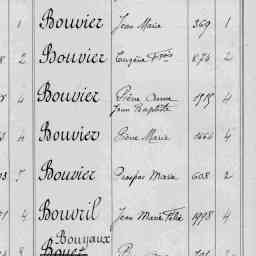 1 Bouvier Jean Marie 369 1
8 2 Bouvier Eugène Frois 876 2
8 4 Bouvier Pierre Anne
Jean Baptiste 1717 4
4 Bouvier Pierre Marie 4
3 Bouvier Prosper Marie 608 2
1 4 Bouvril Jean Marie Félix 1998 4
Bouyaux